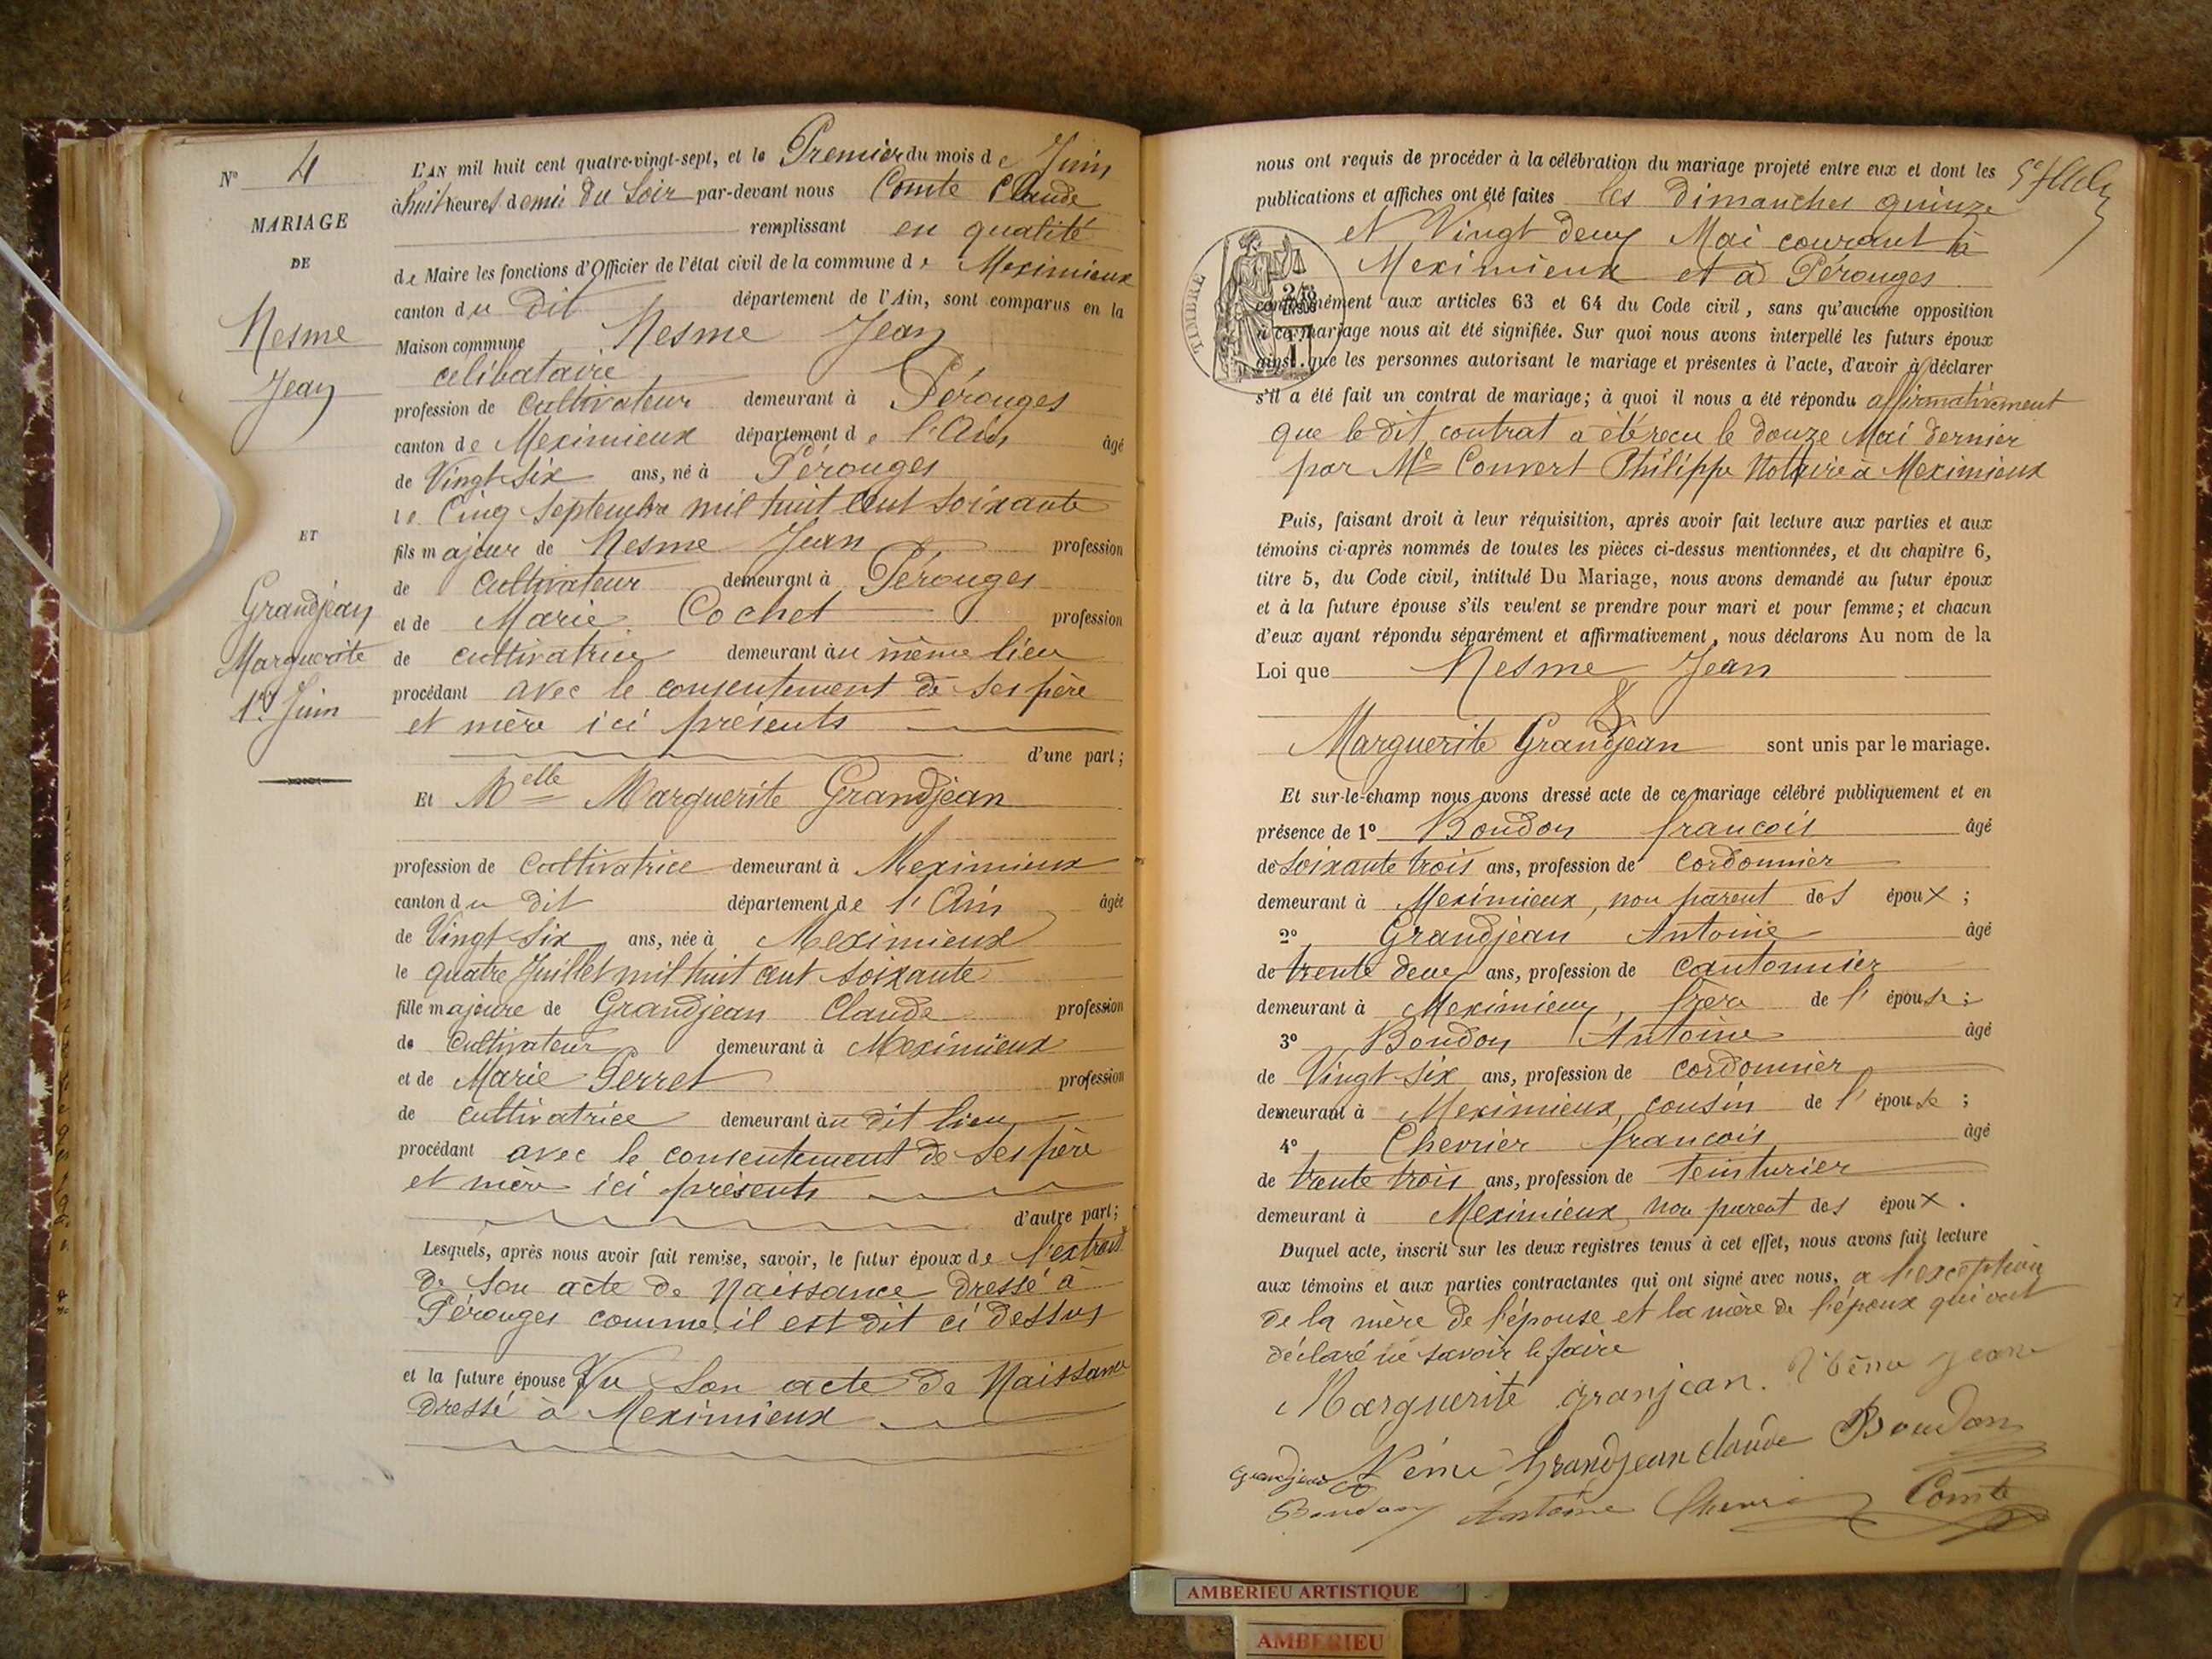 N° 4
MARIAGE
DE
Nesme
Jean
ET
Grandjean
Marguerite
1er Juin
L'AN mil huit cent quatre-vingt-sept, et le Premier du mois de Juin
à huit heures demie du soir par-devant nous Comte Claude
remplissant en qualité
de Maire les fonctions d'Officier de l'état civil de la commune de Meximieux
canton du dit département de l'Ain, sont comparus en la
Maison commune Nesme Jean
celibataire
profession de cultivateur demeurant à Pérouges
canton de Meximieux département de l'Ain âgé
de Vingt Six ans, né à Pérouges
le Cinq Septembre mil huit cent soixante
fils majeur de Nesme Jean profession
de cultivateur demeurant à Pérouges
et de Marie Cochet profession
de cultivatrice demeurant au même lieu
procédant avec le consentement de ses père
et mère ici présents
d'une part;
Et Melle Marguerite Grandjean
profession de cultivatrice demeurant à Meximieux
canton du dit département de l'Ain âgée
de Vingt Six ans, née à Meximieux
le quatre Juillet mil huit cent soixante
fille majeure de Grandjean Claude profession
de cultivateur demeurant à Meximieux
et de Marie Perret profession
de cultivatrice demeurant au dit lieu
procédant avec le consentement de ses père
et mère ici présents
d'autre part;
Lesquels, après nous avoir fait remise, savoir, le futur époux de l'extrait
de son acte de Naissance dressé à
Pérouges comme il est dit ci dessus
et la future épouse Vu son acte de Naissance
dressé à Meximieux
nous ont requis de procéder à la célébration du mariage projeté entre eux et dont les
publications et affiches ont été faites les dimanches quinze
et Vingt deux Mai courant à
Meximieux et à Pérouges
TIMBRE
conformément aux articles 63 et 64 du Code civil, sans qu'aucune opposition
à ce mariage nous ait été signifiée. Sur quoi nous avons interpellé les futurs époux
ainsi que les personnes autorisant le mariage et présentes à l'acte, d'avoir à déclarer
s'il a été fait un contrat de mariage; à quoi il nous a été répondu affirmativement
que le dit contrat a été reçu le douze Mai dernier
par Me Convert Philippe Notaire à Meximieux
Puis, faisant droit à leur réquisition, après avoir fait lecture aux parties et aux
témoins ci-après nommés de toutes les pièces ci-dessus mentionnées, et du chapitre 6,
titre 5, du Code civil, intitulé Du Mariage, nous avons demandé au futur époux
et à la future épouse s'ils veulent se prendre pour mari et pour femme; et chacun
d'eux ayant répondu séparément et affirmativement, nous déclarons Au nom de la
Loi que Nesme Jean
&
Marguerite Grandjean sont unis par le mariage.
Et sur-le-champ nous avons dressé acte de ce mariage célébré publiquement et en
présence de 1° Boudon francois âgé
de soixante trois ans, profession de cordonnier
demeurant à Meximieux, non parent des époux;
2° Grandjean Antoine âgé
de trente deux ans, profession de cantonnier
demeurant à Meximieux, frère de l'épouse;
3° Boudon Antoine âgé
de Vingt six ans, profession de cordonnier
demeurant à Meximieux, cousin de l'épouse;
4° Chevrier francois âgé
de trente trois ans, profession de teinturier
demeurant à Meximieux, non parent des époux.
Duquel acte, inscrit sur les deux registres tenus à cet effet, nous avons fait lecture
aux témoins et aux parties contractantes qui ont signé avec nous, a l'exception
de la mère de l'épouse et la mère de l'époux qui ont
déclaré ne savoir le faire
Marguerite granjean. Néme jean
grandjean Néme Grandjean claude Boudon
Boudon Antoine Comte
AMBERIEU ARTISTIQUE
AMBERIEU